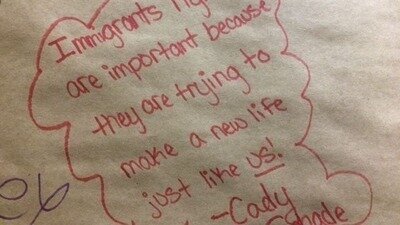 Immigrants
are important because
they are trying to
make a new life
just like us!
-Cady